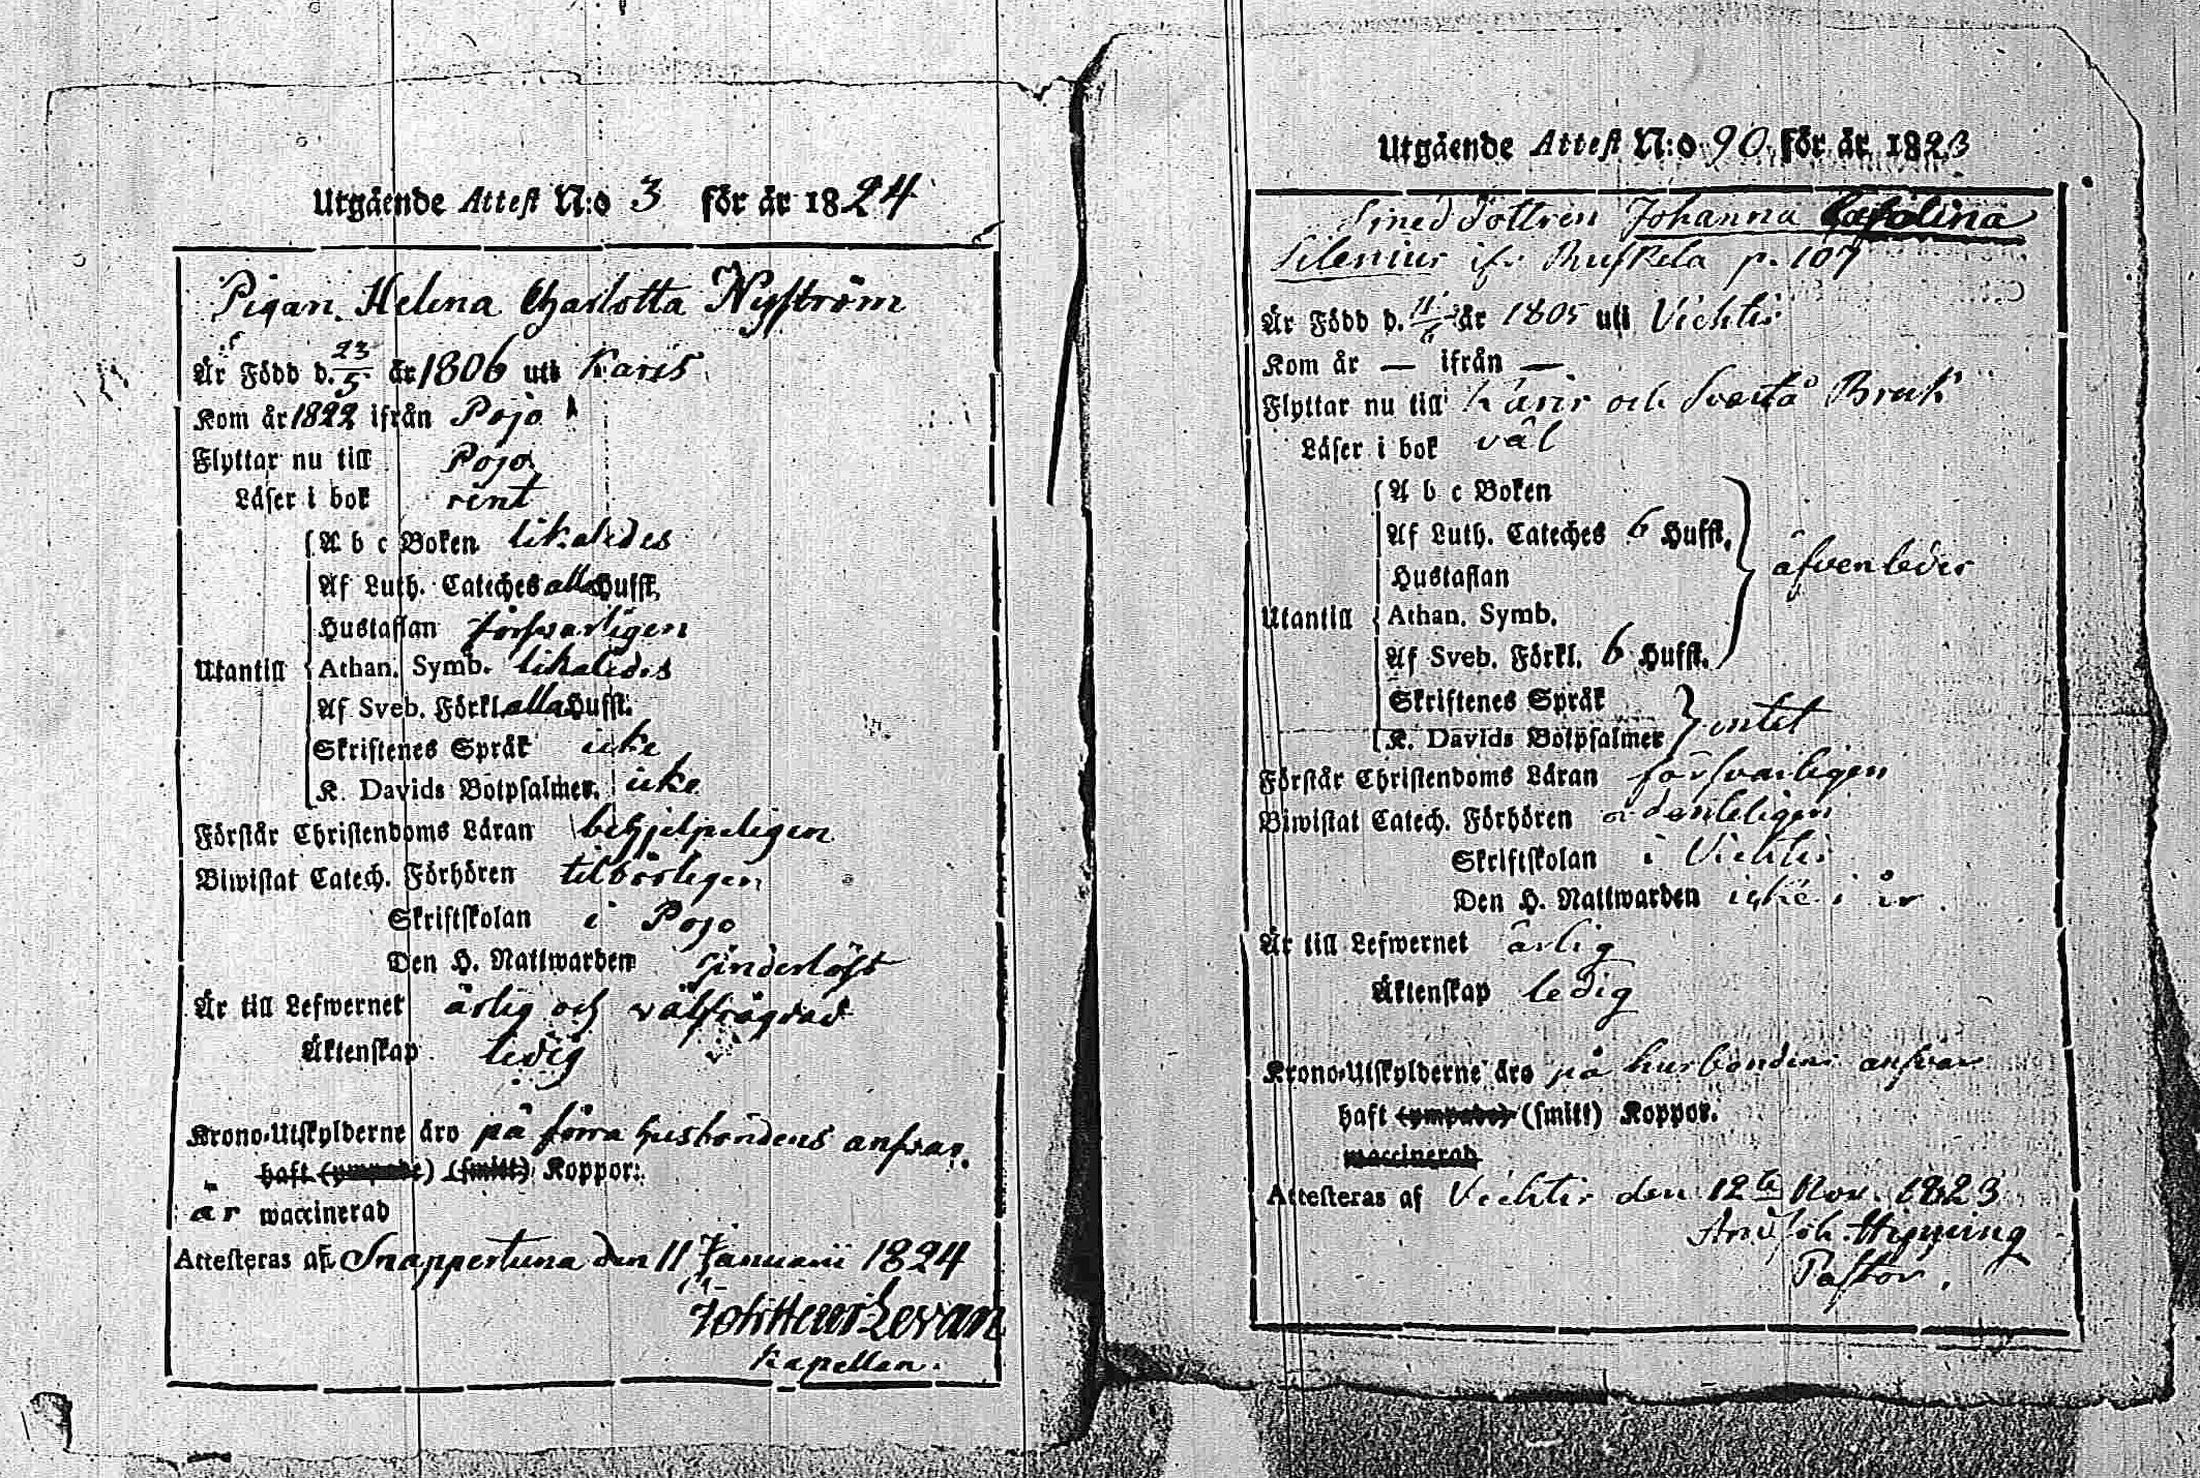 Utgående Attest N:o 3 för år 1824
Pigan Helena Charlotta Nyström
Är Född d. 23/5 år 1806 uti Karis
Kom år 1822 ifrån Pojo
Flyttar nu till Pojo
Läser i bok rent
Utantill
A b c Boken likaledes
Af Luth. Cateches alla Hufst.
Hustaflan försvarligen
Athan. Symb. likaledes
Af Sveb. Förkl. alla Hufst.
Skriftenes Språk icke
K. Davids Botpsalmer. icke
Förstår Christendoms Läran behjelpeligen
Biwistat Catech. Förhören tilbörligen
Skriftskolan i Pojo
Den H. Nattwarden
Är till Lefwernet ärlig och välfrägdad
Äktenskap ledig
Krono-Utskylderne äro på förra husbondens ansvar.
haft (ympade) (smitt) Koppor.
är waccinerad
Attesteras af Snappertuna den 11 Januarii 1824
Kapellan.
Utgående Attest N:o 90 för år 1823
Dottren Johanna Carolina
Silenius ifr. p. 107
Är Född d. 11/6 år 1805 uti Vichtis
Kom år — ifrån —
Flyttar nu till Karis och Svartå Bruk
Läser i bok väl
Utantill
A b c Boken
Af Luth. Cateches 6 Hufst.
Hustaflan
Athan. Symb.
Af Sveb. Förkl. 6 Hufst.
äfvenledes
Skriftenes Språk
K. Davids Botpsalmer
intet
Förstår Christendoms Läran försvarligen
Biwistat Catech. Förhören ordenteligen
Skriftskolan i Vichtis
Den H. Nattwarden icke i år.
Är till Lefwernet ärlig
Äktenskap ledig
Krono-Utskylderne äro på husbondens ansvar
haft (ympade) (smitt) Koppor.
waccinerad
Attesteras af Vichtis den 12te Nov. 1823
Pastor.